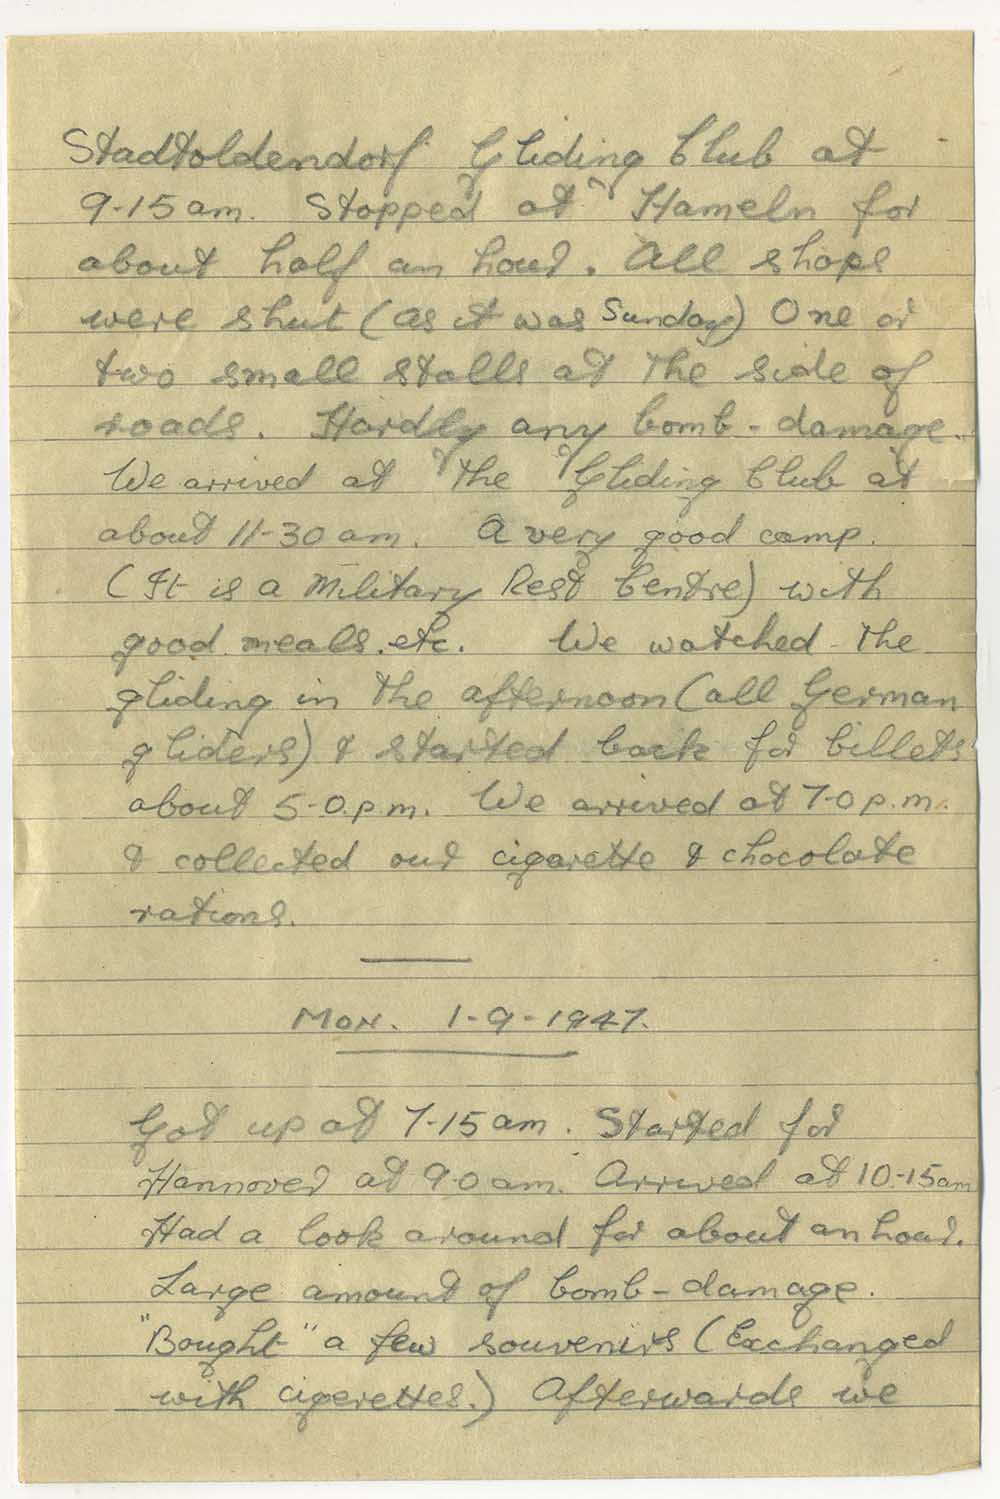 Stadtoldendorf Gliding Club at
9-15 am. Stopped at Hameln for
about half an hour. All shops
were shut (as it was Sunday) One or
two small stalls at the side of
roads. Hardly any bomb-damage.
We arrived at the Gliding Club at
about 11-30 am. A very good camp.
(It is a Military Rest Centre) with
good meals. etc. We watched the
gliding in the afternoon (all German
gliders) & started back for billets
about 5-0.p.m. We arrived at 7-0 p.m.
& collected our cigarette & chocolate
rations.
Mon. 1-9-1947.
Got up at 7-15 am. Started for
Hannover at 9-0 am. Arrived at 10-15am
Had a look around for about an hour.
Large amount of bomb-damage.
"Bought" a few souvenirs (Exchanged
with cigerettes.) Afterwards we